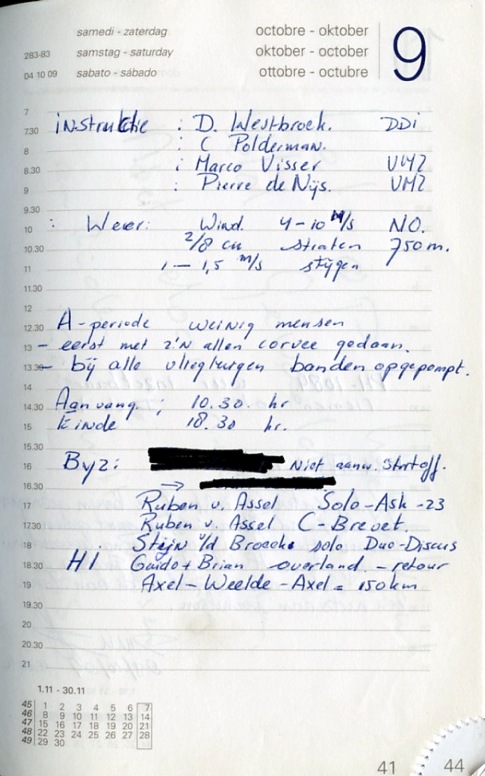 samedi - zaterdag octobre - oktober 9
283-83 samstag - saturday oktober - october
04 10 09 sabato - sábado ottobre - octubre
7
7.30 instruktie : D. Westbroek. DDi
8 : C Polderman.
8.30 : Marco Visser VMZ
9 : Pierre de Nijs. VMZ
9.30
10 : Weer: Wind 4-10 M/s NO.
10.30 2/8 cu straten 750m.
11 1 - 1,5 m/s stijgen
11.30
12
12.30 A-periode weinig mensen
13 - eerst met z'n allen corvee gedaan.
13.30 - bij alle vliegtuigen banden opgepompt.
14
14.30 Aanvang ; 10.30. hr
15 Einde 18.30 hr.
15.30
16 Byz: Niet aanw. Startoff.
16.30 →
17 Ruben v. Assel Solo-Ask-23
17.30 Ruben v. Assel C-Brevet.
18 Steijn v/d Broecke solo Duo-Discus
18.30 H1 Guido + Brian overland - retour
19 Axel - Weelde - Axel = 150km
19.30
20
20.30
21
1.11 - 30.11
45 1 2 3 4 5 6 7
46 8 9 10 11 12 13 14
47 15 16 17 18 19 20 21
48 22 23 24 25 26 27 28
49 29 30
41 44